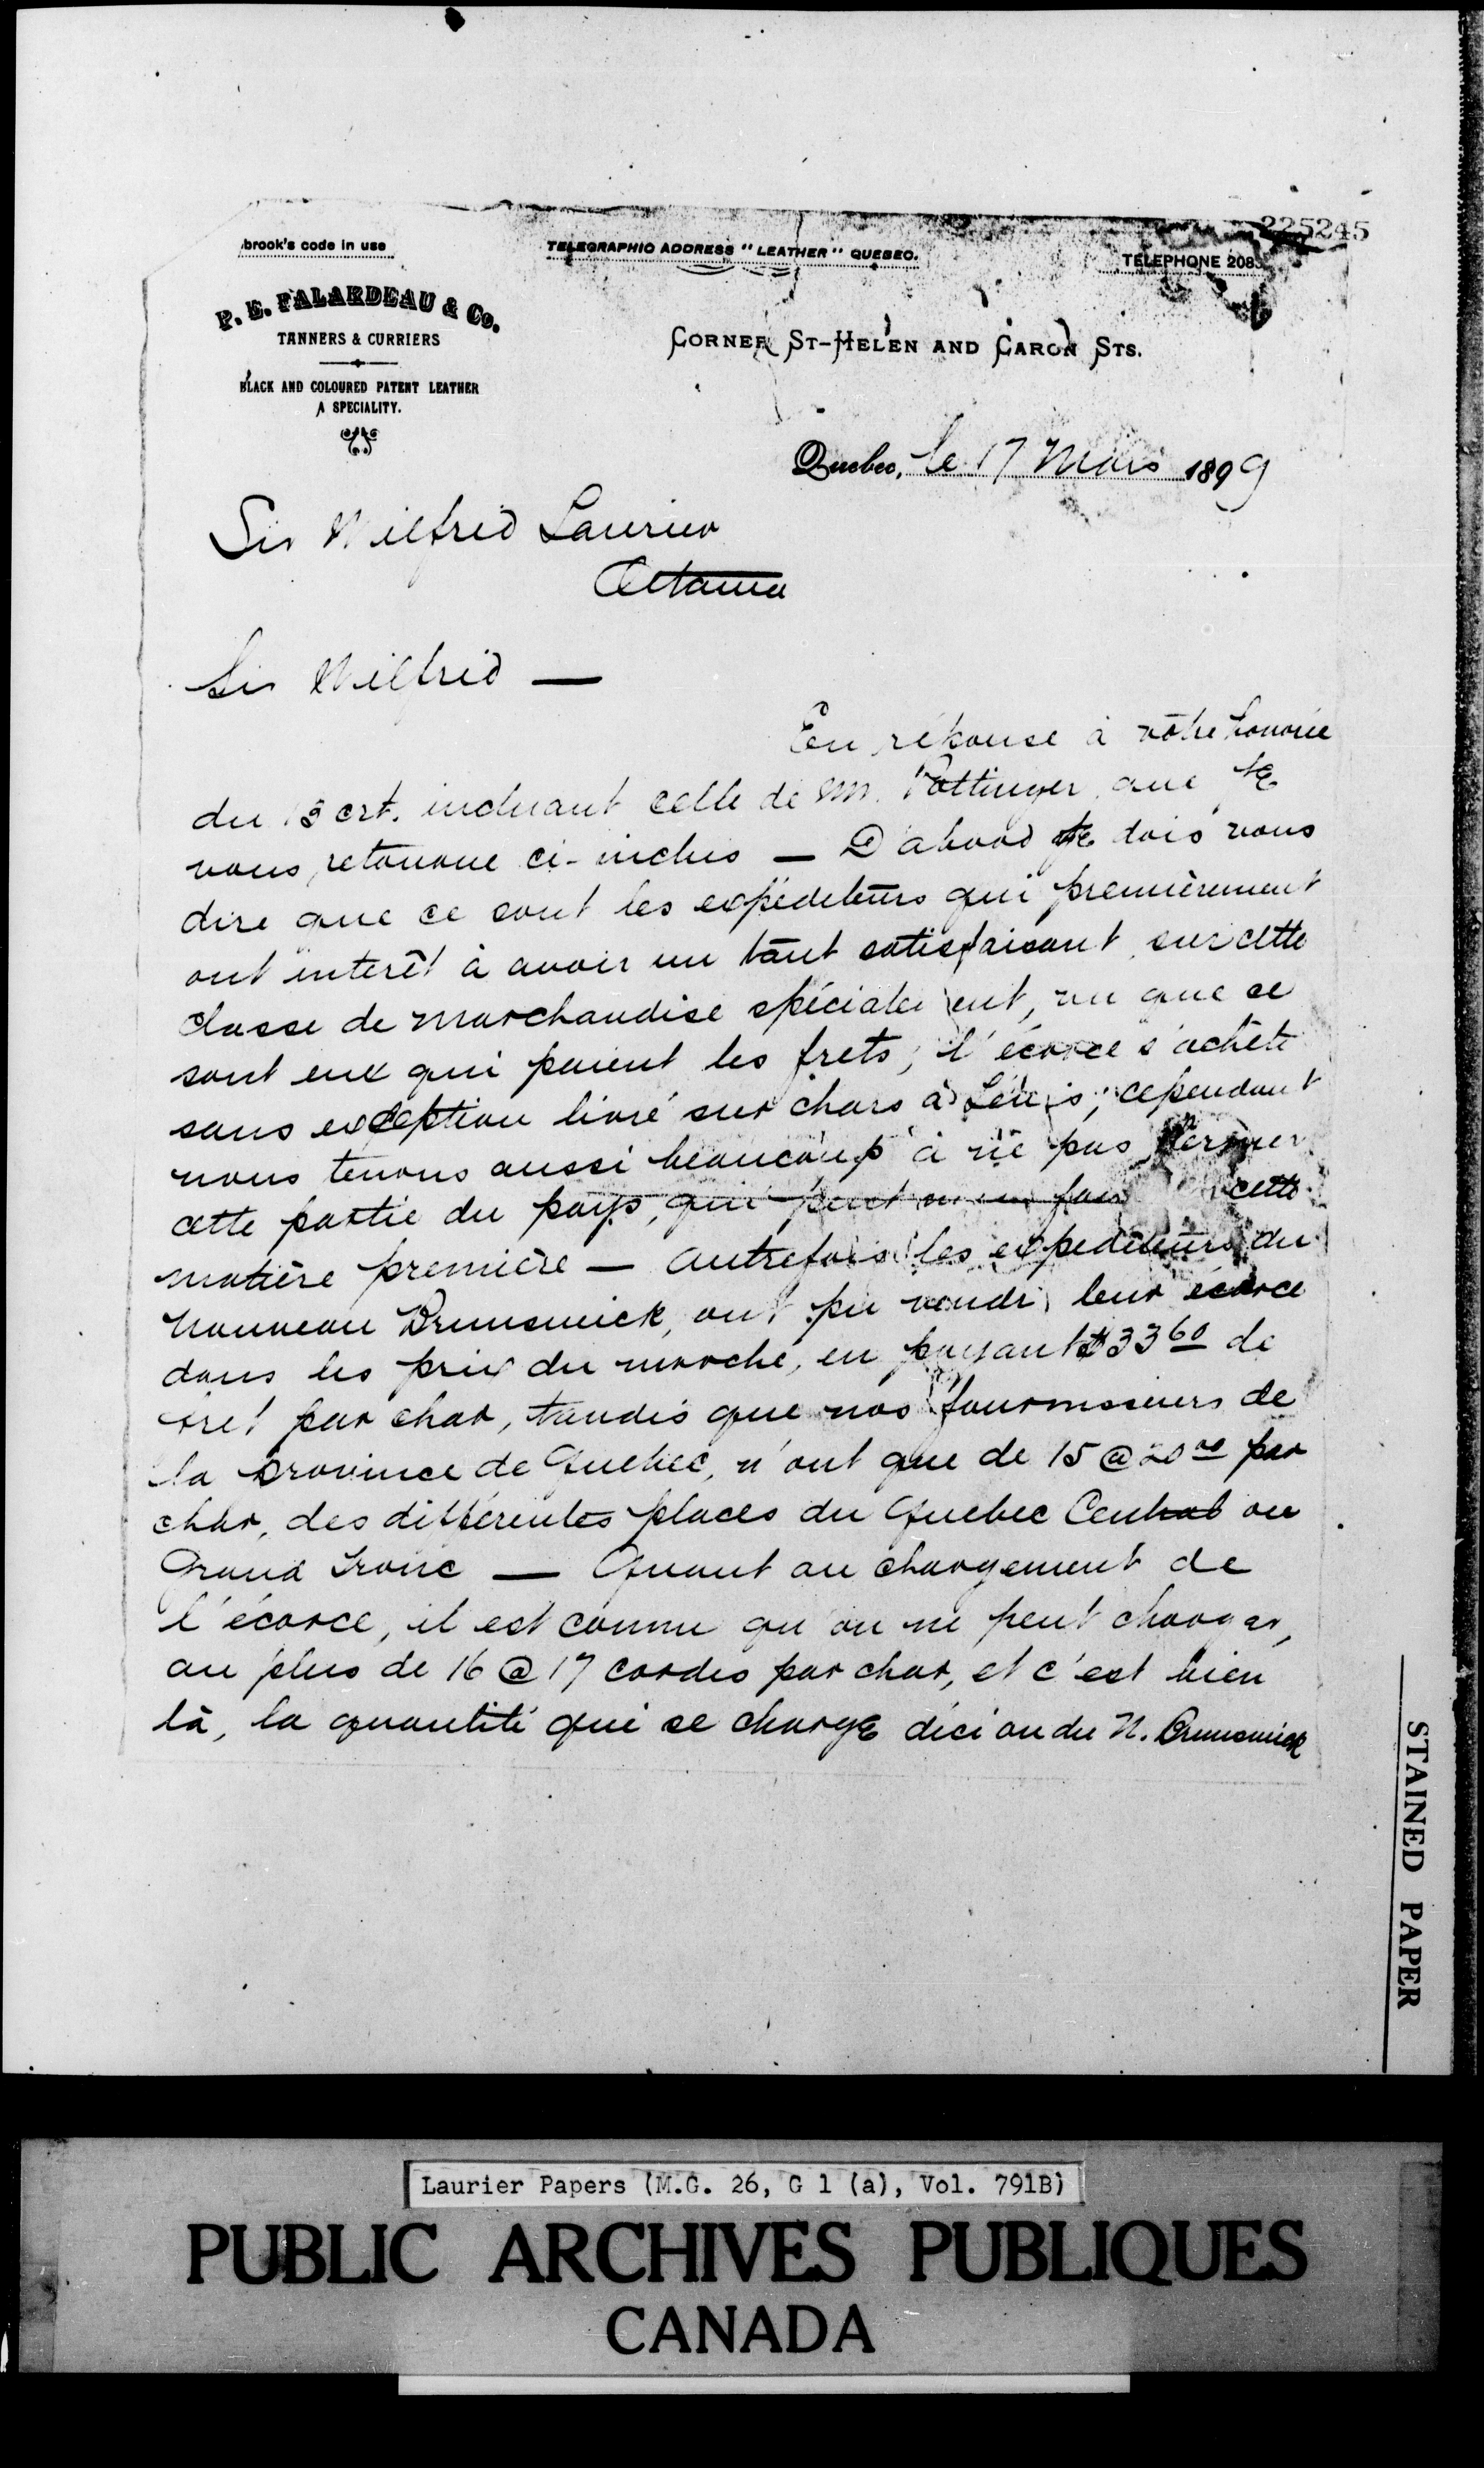 225245
brook's code in use
TELEGRAPHIC ADDRESS "LEATHER" QUEBEC.
TELEPHONE 208
P. E. FALARDEAU & Co.
TANNERS & CURRIERS
BLACK AND COLOURED PATENT LEATHER
A SPECIALITY.
CORNER ST-HELEN AND CARON STS.
Quebec, le 17 Mars 1899
Sir Wilfrid Laurier
Ottawa
Sir Wilfrid —
En réponse à vôtre honorée
du 13 crt. incluant celle de Mr. Pottinger, que Je
vous retourne ci-inclus — D'abord Je dois vous
dire que ce sont les expéditeurs qui premièrement
ont interêt à avoir un satisfaisant, sur cette
classe de marchandise spécialement, vu que ce
sont eux qui paient les frets; l'écorce s'achète
sans exception livré sur chars à Lévis; cependant
nous tenons aussi beaucoup à ne pas fermer
cette partie du pays, qui peut cette
matière première — Autrefois les expediteurs du
Nouveau Brunswick, ont pu vendre leur écorce
dans les prix du marché, en payant $33 60 de
fret par char, tandis que nos fournisseurs de
la province de Quebec, n'ont que de 15 @ 20 00 par
char, des différentes places du Quebec Central ou
Grand Tronc — Quant au chargement de
l'écorce, il est connu qu'on ne peut charger,
au plus de 16 @ 17 cordes par char, et c'est bien
là, la quantité qui se charge d'ici ou du N. Brunswick
STAINED PAPER
Laurier Papers (M.G. 26, G 1 (a), Vol. 791B)
PUBLIC ARCHIVES PUBLIQUES
CANADA